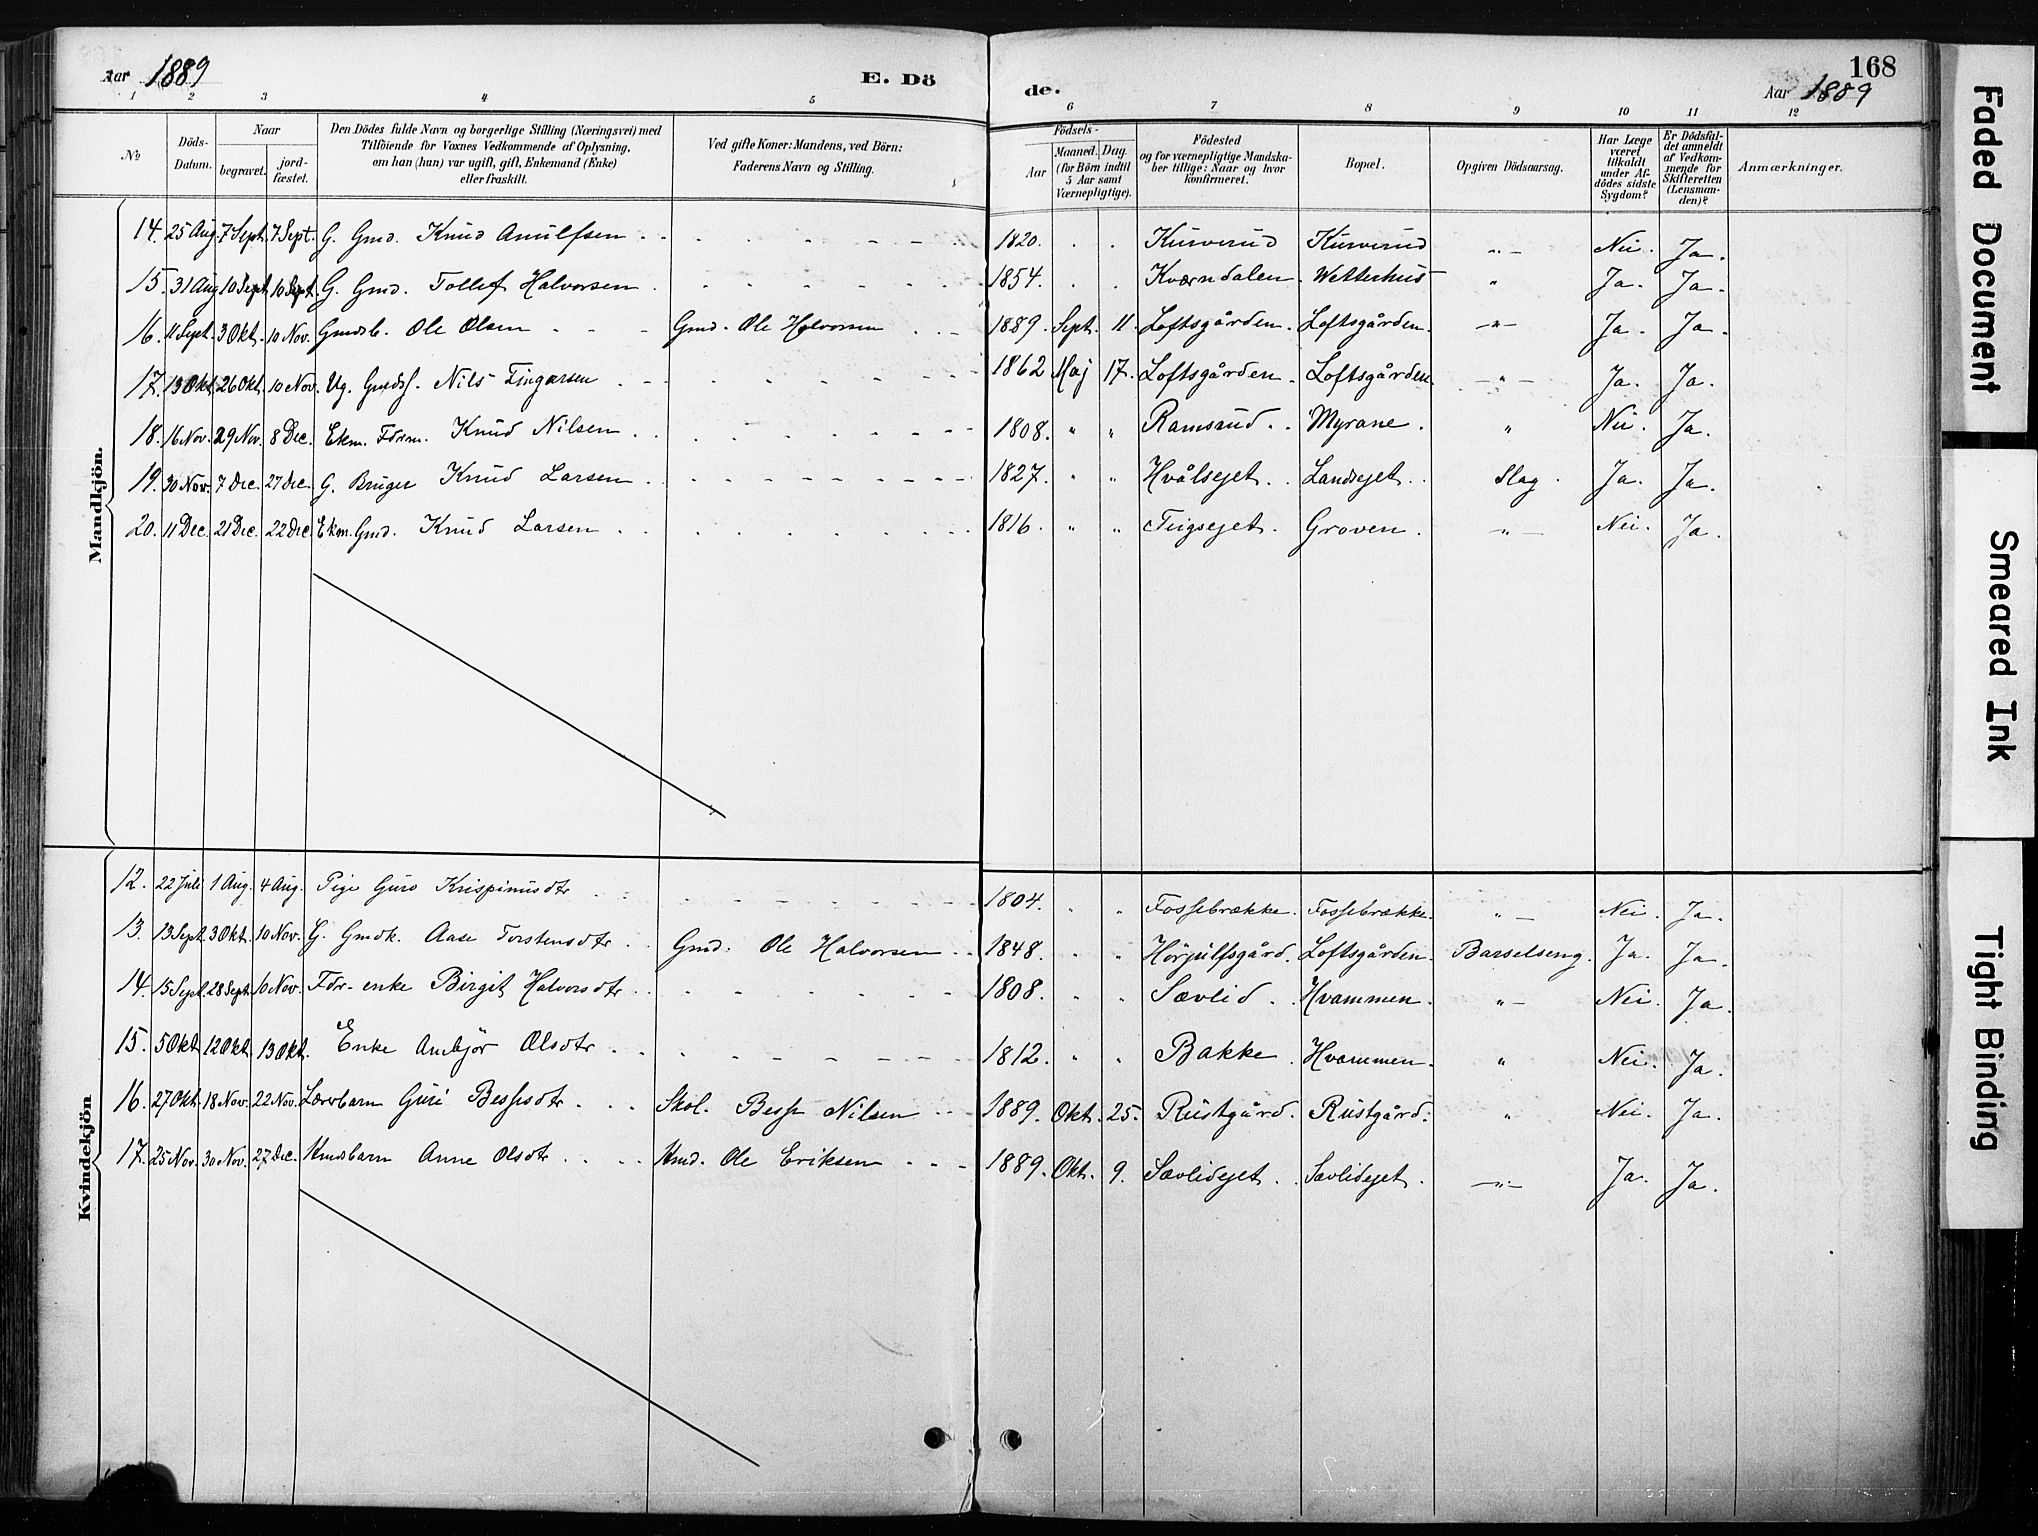 Aar 1889 E. Dö de. Aar 1889 168
1 2 3 4 5 6 7 8 9 10 11 12
No Döds-Datum. Naar begravet. jord-fæstet. Den Dödes fulde Navn og borgerlige Stilling (Næringsvei) med Tilföiende for Voxnes Vedkommende af Oplysning, om han (hun) var ugift, gift, Enkemand (Enke) eller fraskilt. Ved gifte Koner: Mandens, ved Börn: Faderens Navn og Stilling. Födsels- Aar Maaned. Dag. (for Börn indtil 5 Aar samt Værnepligtige). Födested og for værnepligtige Mandska-ber tillige: Naar og hvor konfirmeret. Bopæl. Opgiven Dödsaarsag. Har Læge været tilkaldt under Af-dödes sidste Sygdom? Er Dödsfal-det anmeldt af Vedkom-mende for Skifteretten (Lensman-den)? Anmærkninger.
Mandkjön.
14. 25 Aug 7 Sept. 7 Sept. G. Gmd. Knud Arnulfsen 1820. Kurverud Kurverud " Nei. Ja.
15. 31 Aug 10 Sept 10 Sept. G. Gmd. Tollef Halvorsen 1854. Kværndalen. Wetterhus " Ja. Ja.
16. 11 Sept. 3 Okt. 10 Nov. Gmdsb. Ole Olsen Gmd. Ole Halvorsen 1889. Sept. 11. Loftsgården. Loftsgården. " Ja. Ja.
17. 13 Okt 26 Okt. 10 Nov. Ug. Gmdss. Nils Fingarsen 1862 Maj 17. Loftsgården. Loftsgården. " Ja. Ja.
18. 16 Nov. 29 Nov. 8 Dec. Ekm. Fdrm. Knud Nilsen 1808. " " Ramsrud. Myrane. " Nei. Ja.
19. 30 Nov. 7 Dec. 27 Dec. G. Bruger Knud Larsen 1827. " " Hvålsejet. Landsejet. Slag. Ja. Ja.
20. 11 Dec. 21 Dec. 22 Dec. Ekm. Gmd. Knud Larsen 1816. " " Teigsejet. Groven. " Nei. Ja.
Kvindekjön
12. 22 Juli 1 Aug. 4 Aug. Pige Guro Krispinusdtr 1804. " " Fossebrække. Fossebrække. " Nei. Ja.
13. 13 Sept. 3 Okt. 10 Nov. G. Gmdk. Aase Torstensdtr Gmd. Ole Halvorsen 1848. " " Hörjulfsgård. Loftsgården. Barselseng. Ja. Ja.
14. 15 Sept. 28 Sept 10 Nov. Fdr-enke Birgit Halvorsdtr 1808. " " Sævlid. Hvammen. " Nei. Ja.
15. 5 Okt 12 Okt 13 Okt. Enke Ambjör Olsdtr 1812. " " Bakke. Hvammen. " Nei. Ja.
16. 27 Okt. 18 Nov. 22 Nov. Lærerbarn Guri Bessesdtr Skol. Besse Nilsen 1889. Okt. 25. Rustgård. Rustgård. " Nei. Ja.
17. 25 Nov. 30 Nov. 27 Dec. Hmdsbarn Anne Olsdtr Hmd. Ole Eriksen 1889. Okt. 9. Sævlidejet. Sævlidejet. " Ja. Ja.
Faded Document
Smeared Ink
Tight Binding